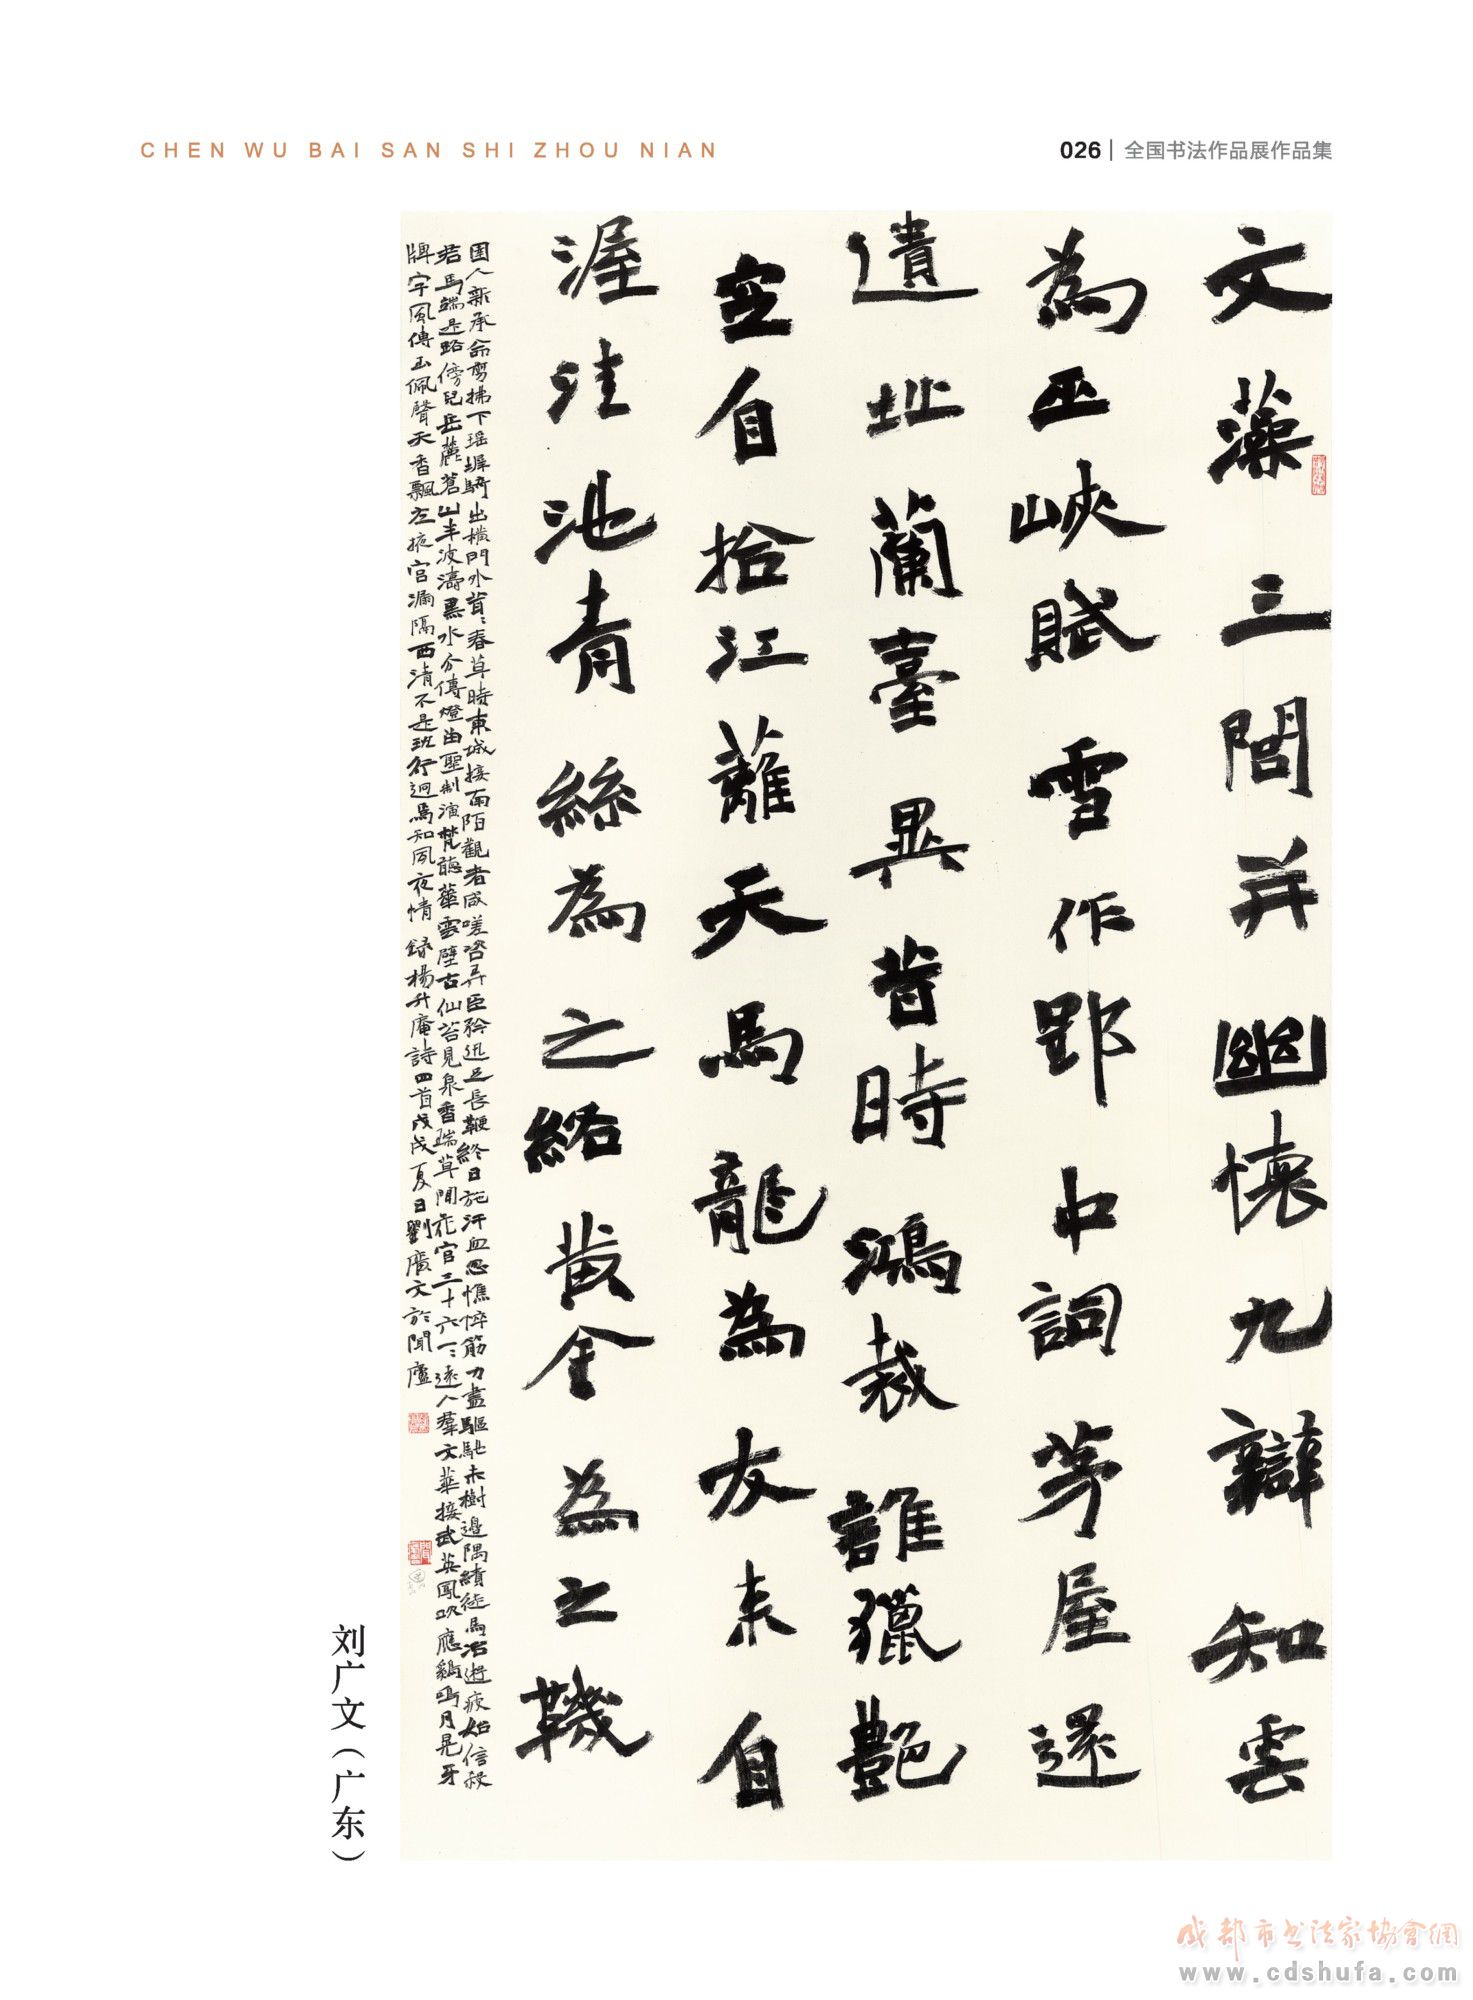 CHEN WU BAI SAN SHI ZHOU NIAN
026 | 全国书法作品展作品集
文藻三閭并幽懷九辯知雲
為巫峽賦雪作郢中詞茅屋還
遺址蘭臺異昔時鴻裁誰獵艷
空自拾江蘺天馬龍為友来自
渥洼池青絲為之絡黄金為之鞿
圉人新承命剪拂下瑶墀騎出横門外首春草時東城接南陌觀者咸嗟咨弄臣矜迅足長鞭終日施汗血忽憔悴筋力盡驅馳未樹邊隅績徒馬沼遊疲始信
若馬端是路傍兒岳麓蒼山半波濤黑水分傳燈由聖制演梵聽華雲壁古仙苔見泉香瑞草聞花宫三十六一一遠人羣文華接武英鳳吹應鷄鳴月晃牙
牌字風傳玉佩聲天香飄左掖官漏隔西清不是班行迥焉知夙夜情 録楊升庵詩四首戊戌夏日劉廣文於聞廬
刘广文（广东）
成都市书法家协會網
www.cdshufa.com